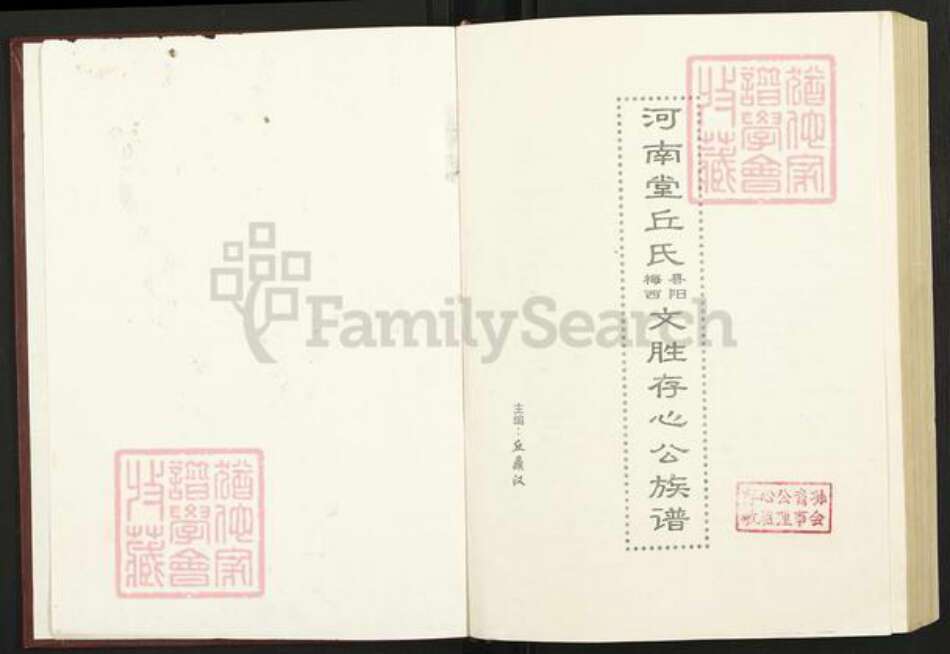 河南堂丘氏
梅县
西阳
文胜存心公族谱
主编：丘鼎汉
猶他家
譜學會
收藏
猶他家
譜學會
收藏
心公裔孙
理事会
FamilySearch